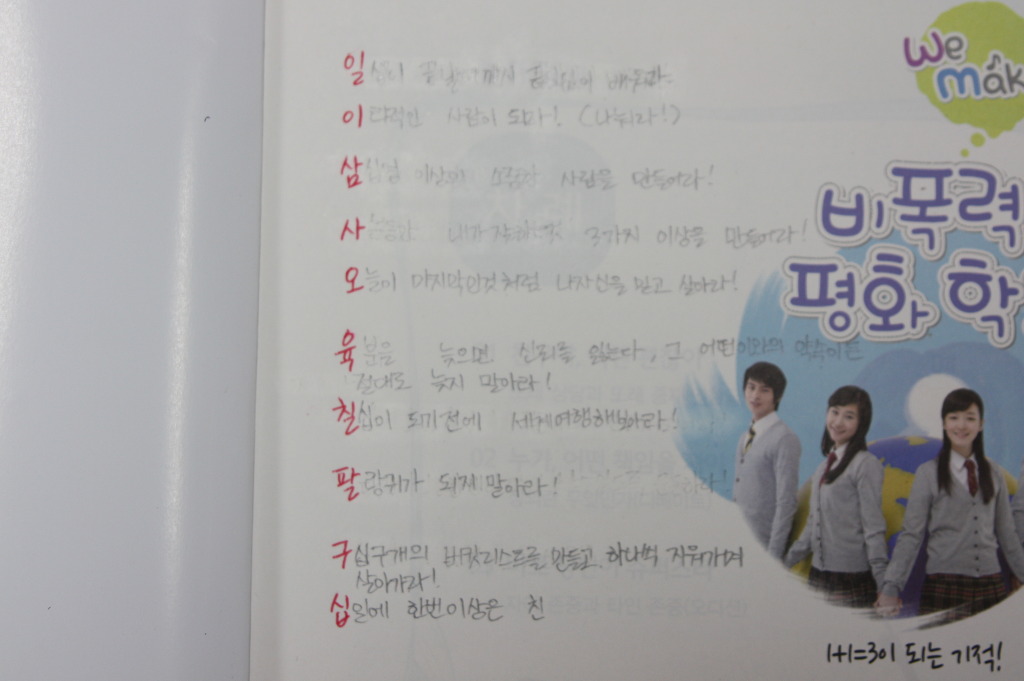 We
mak
비폭력
평화 학
일
이타적인 사람이 되라! (나눠라!)
삼십명 이상의 소중한 사람을 만들어라!
사 내가 3가지 이상을 만들어라!
오늘이 마지막인것처럼 나자신을 믿고 살아라!
육분을 늦으면 신뢰를 잃는다, 그 어떤이와의 약속이든
절대로 늦지 말아라!
칠십이 되기전에 세계여행해보아라!
팔랑귀가 되지 말아라!
구십구개의 버킷리스트를 만들고 하나씩 지워가며
살아가라!
십일에 한번이상은 친
1+1=3이 되는 기적!